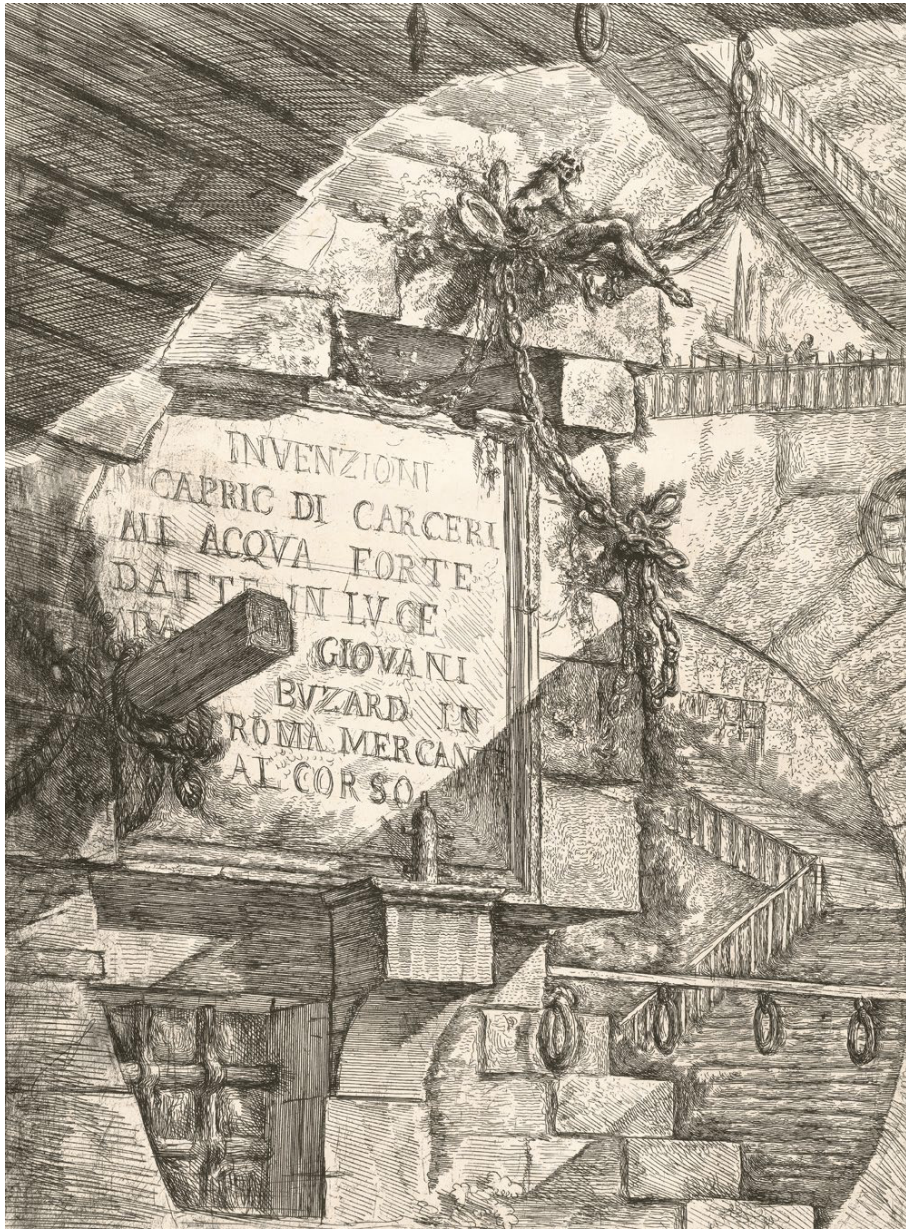 INVENZIONI
CAPRIC DI CARCERI
ALE ACQVA FORTE
DATTE IN LVCE
GIOVANI
BVZARD IN
ROMA MERCAN
AL CORSO